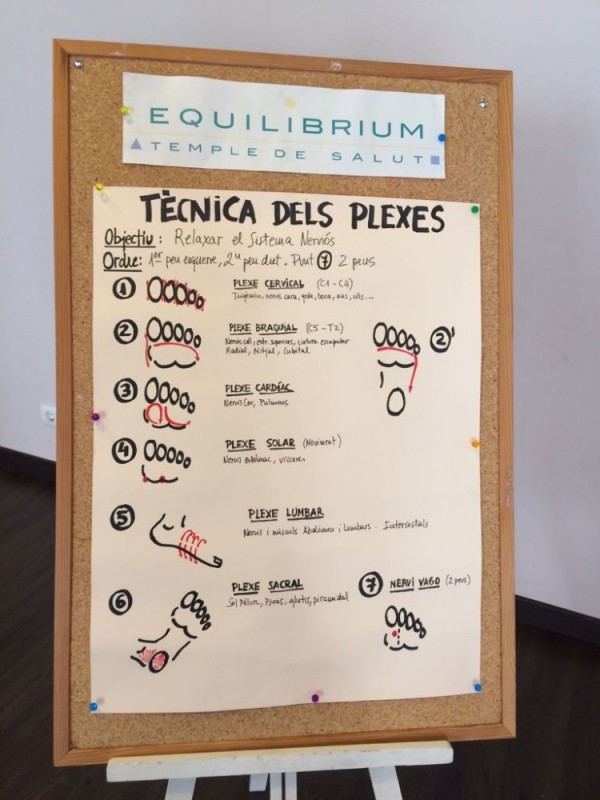 EQUILIBRIUM
TEMPLE DE SALUT
TÈCNICA DELS PLEXES
Objectiu: Relaxar el Sistema Nerviós
Ordre: 1er peu esquerre, 2n peu dret. Punt 7 2 peus
1 PLEXE CERVICAL (C1-C4)
Trigèmin, nervis cara, gola, boca, nas, ulls...
2 PLEXE BRAQUIAL (C5-T2) 2'
Nervis coll, extr. superiors, cintura escapular
Radial, Mitjal, Cubital
3 PLEXE CARDÍAC
Nervis Cor, Pulmons
4 PLEXE SOLAR (Moviment)
Nervis estómac, vísceres
5 PLEXE LUMBAR
Nervis i músculs Abdòmen i Lumbars - Intercostals
6 PLEXE SACRAL
Sol Pèlvic, Psoas, glutis, piramidal
7 NERVI VAGO (2 peus)